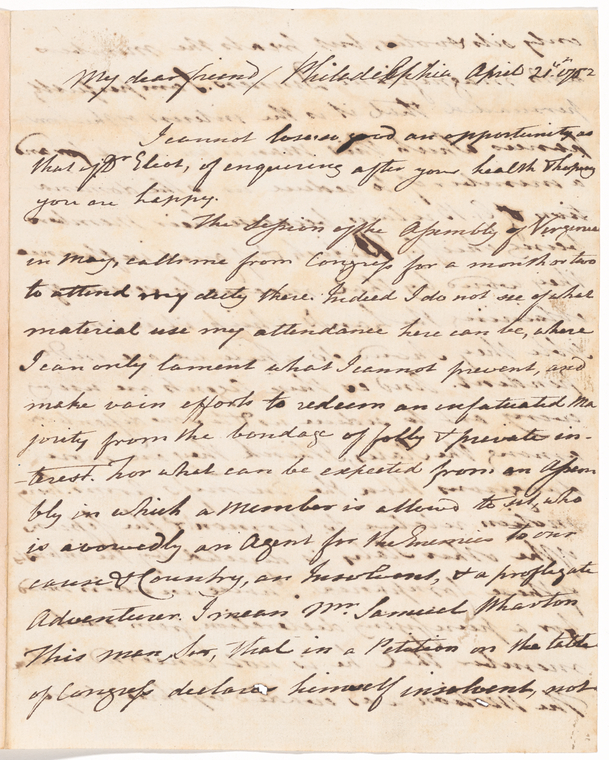 My dear friend / Philadelphia April 21st 1782
I cannot lose so good an opportunity as
that of Dr Eliot, of enquiring after your health & hoping
you are happy.
The Session of the Assembly of Virginia
in May, calls me from Congress for a month or two
to attend my duty there. Indeed I do not see of what
material use my attendance here can be, where
I can only lament what I cannot prevent, and
make vain efforts to redeem an infatuated Ma
jority from the bondage of folly & private in-
terest. For what can be expected from an Assem
bly in which a Member is allowed to sit, who
is avowedly an Agent for the Enemies to our
cause & Country, an Insolvent, & a profligate
Adventurer. I mean Mr. Samuel Wharton
This man, Sir, that in a Petition on the table
of Congress declares himself insolvent, not